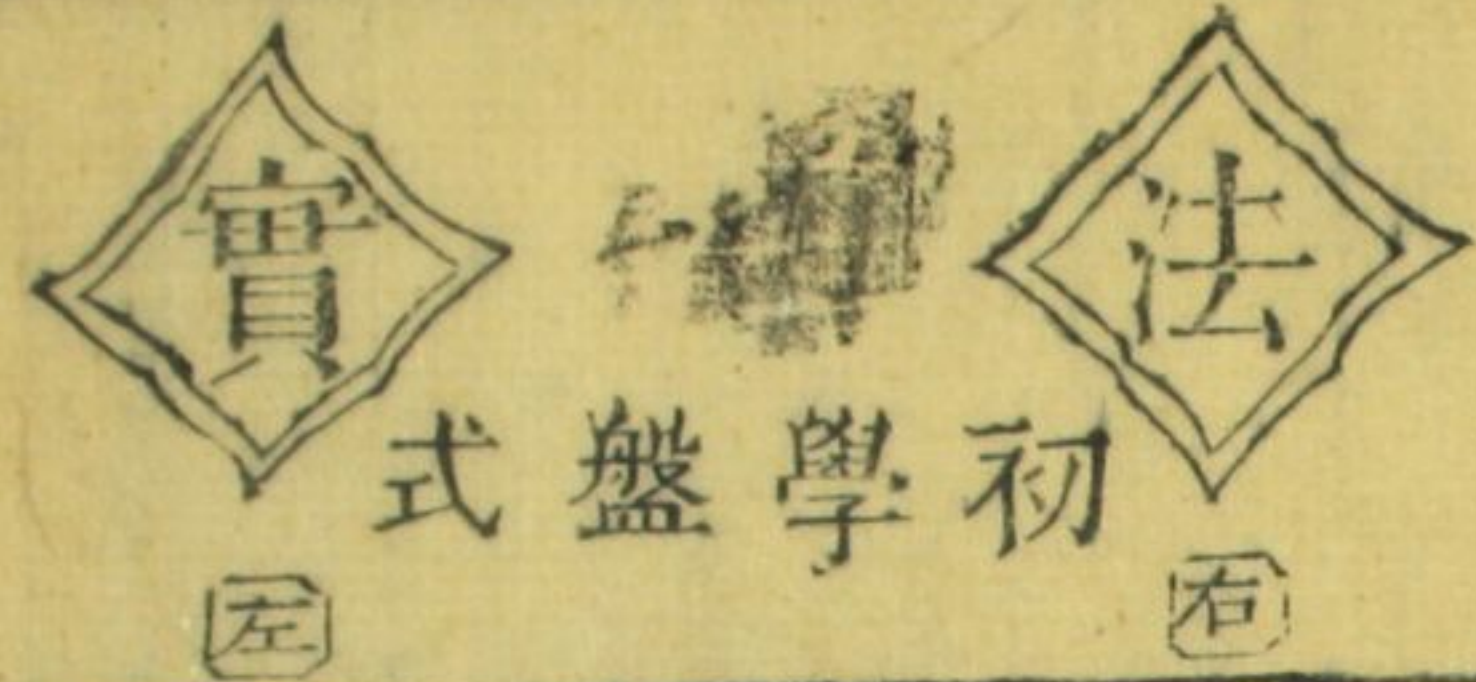 法
實
初學盤式
右
左